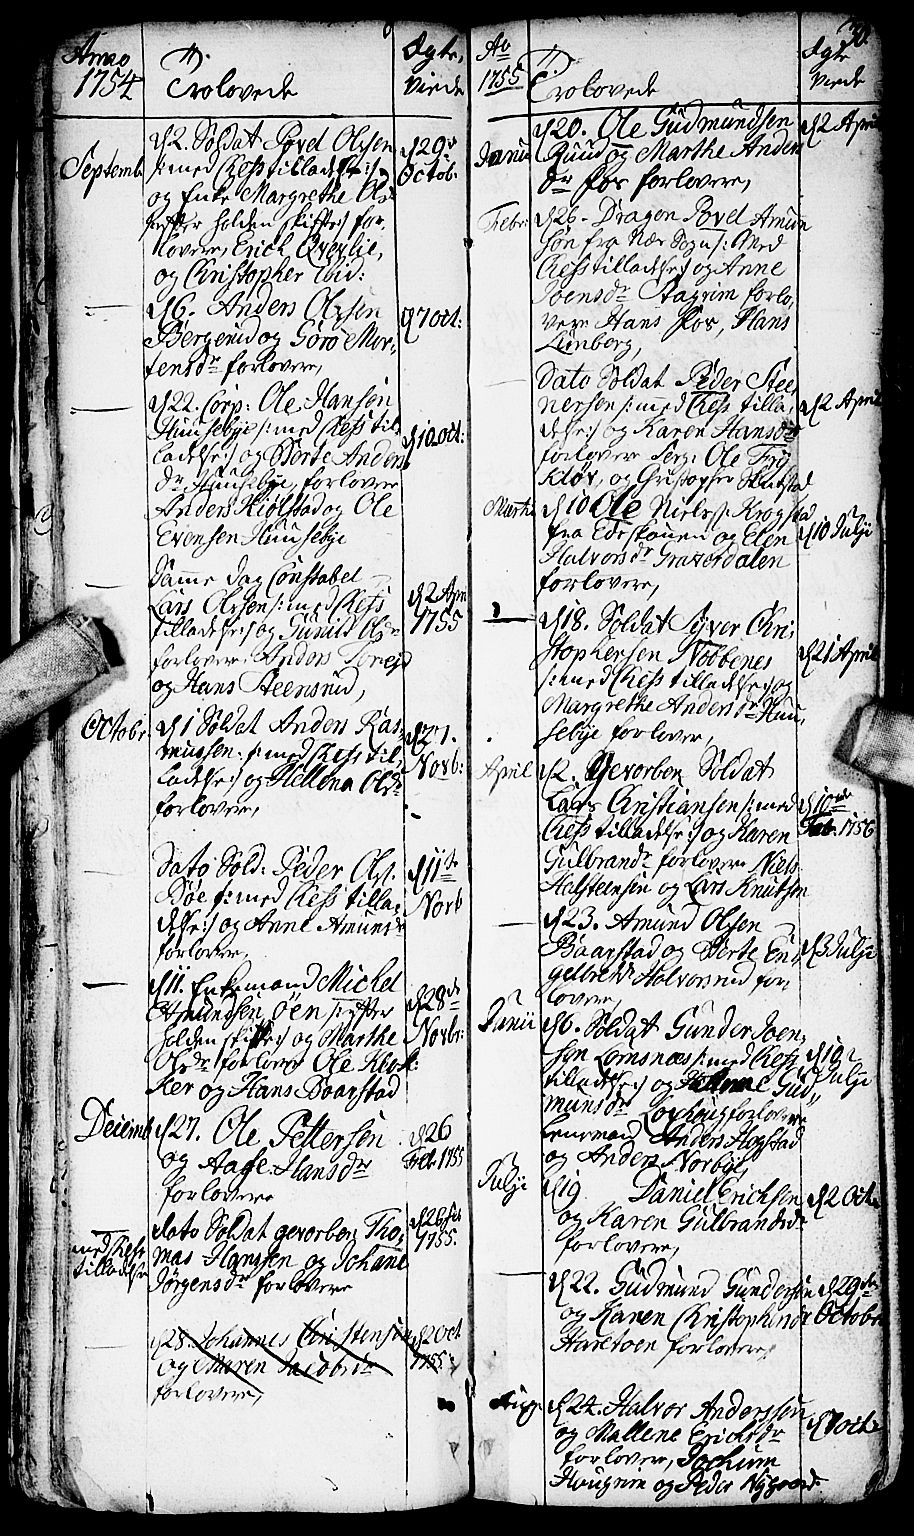 Anno
1754
Trolovede
Ægte
viede
Septemb:
d 2. Soldat Povel Olsen
/: med Chefs tilladelse :/
og Enke Margrethe Ols dr
/: efter holden skifte :/ for-
lovere, Erich
og Christopher ibid:
d 29
Octob:
— d 6. Anders Olsen
Bergerud og Goro Mor-
tensdr forlovere,
d 7 oct:
— d 22. Corp: Ole Hansen
Huusebye /: med Chefs til-
ladelse :/ og Dorte Anders
dr Huusebye, forlovere
Anders Kiølstad og Ole
Evensen Huusebye
d 10 oct:
— Samme dag Constabel
Lars Olesen /: med Chefs
tilladelse :/ og Gunild Ols dr
forlovere Anders
og Hans Steensrud,
d 2 Apr
1755
Octobr:
d 1 Soldat Anders Ras-
mussen /: med Chefs til-
ladelse :/ og Hellena Olsdr
forlovere,
d 27.
Novb:
— Dato Sold: Peder Ols:
Bøe /: med Chefs tilla-
delse :/ og Anne Amunds dr
forlovere,
d 11te
Novb
— d 11. Enkemand Michel
Amundsen Öen /: efter
holden skifte :/ og Marthe
Ols dr forlovere Ole Klok-
ker og Hans Baarstad
d 28de
Novbr:
Decemb
d 27. Ole Pettersen
og Aase Hansdr
forlovere
d 26
Feb: 1755
med Chefs
tilladelse
dato Soldat gevorben Tho-
mas Hanssen og Johane
Jørgensdr forlovere
d 26 Feb
1755.
— d 28. Johannes Christensen
og Maren Jacobsdr
forlovere,
d 2 Oct
1755:
Ao
1755
Trolovede
30
Ægte
viede
Janua
d 20. Ole Gudmundsen
Ruud og Marthe Anders
dr Foss forlovere,
d 2 April
Febr:
d 26. Dragon Povel Amun
søn fra Næs Sogn /: Med
Chefs tilladelse :/ og Anne
Joensdr forlo-
vere Hans Foss, Hans
Lunborg,
— Dato Soldat Peder Stee
nersen /: med Chefs tilla-
delse :/ og Karen Hansdr
forlovere Serg: Ole Fry
og Christopher
d 2 April
Martii
d 10 Ole Niels: Krogstad
fra og Elen
Halvorsdr Graverdalen
forlovere,
d 10 Julÿ
— d 18. Soldat Syver Chri-
stophersen
/: med Chefs tilladelse :/ og
Margrethe Andersdr Huu-
sebye forlovere,
d 21 April
April
d 2. Gevorben Soldat
Lars Christiansen /: med
Chefs tilladelse :/ og Karen
Gulbrandr forlovere Niels
Halsteensen og Lars Knutsen
d 10de
Feb: 1756
— d 23. Amund Olsen
Baarstad og Dorte En-
gelbretdr Halvorsrud for-
lovere,
d 3 Julÿ
Junii
d 6. Soldat Gunder Joen-
sen /: med Chefs
tilladelse :/ og Gud-
munsdr forlovere
Lensmand Anders Hogstad
og Anders Norbye,
d 10
Julÿ
Julÿ
d 19 Daniel Erichsen
og Karen Gulbrandsdr
forlovere,
d 2 Oct:
— d 22. Gudmund Gundersen
og Karen Christophersdr
forlovere,
d 29de
October
Aug:
d 24. Halvor Anderssen
og Mallene Erichsdr
forlovere, Jochum
Haugrim og Peder Nÿgaard
d 7 octb